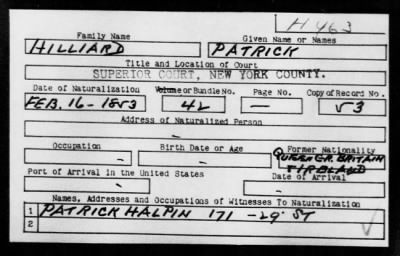 H 463
Family Name Given Name or Names
HILLIARD PATRICK
Title and Location of Court
SUPERIOR COURT, NEW YORK COUNTY.
Date of Naturalization Volume or Bundle No. Page No. Copy of Record No.
FEB. 16-1853 42 — 53
Address of Naturalized Person
-
Occupation Birth Date or Age Former Nationality
- - QUEEN GR. BRITAIN
& IRELAND
Port of Arrival in the United States Date of Arrival
- -
Names, Addresses and Occupations of Witnesses To Naturalization
1 PATRICK HALPIN 171 - 29' ST
2